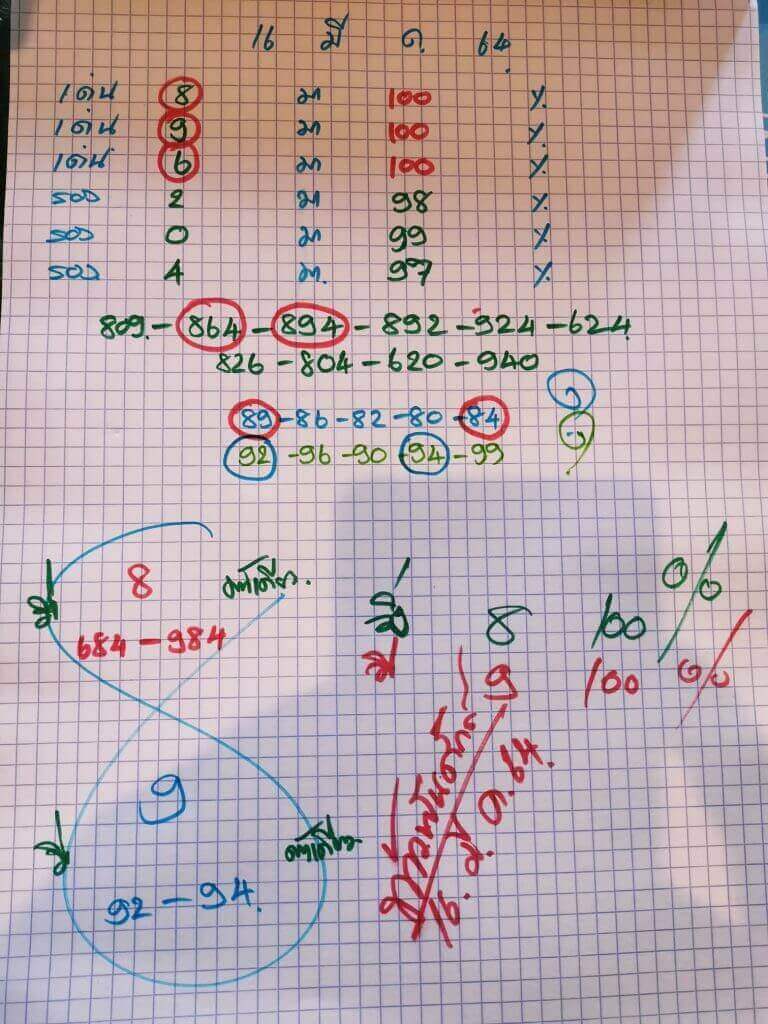 16 มี ค. 64.
เด่น 8 มา 100 %
เด่น 9 มา 100 %
เด่น 6 มา 100 %
รอง 2 มา 98 %
รอง 0 มา 99 %
รอง 4 มา. 97 %
809.-864-894-892-924-624.
826-804-620-940
89-86-82-80-84
92-96-90-94-99
8
684-984
8 100 %
9 100 %
9
92-94.